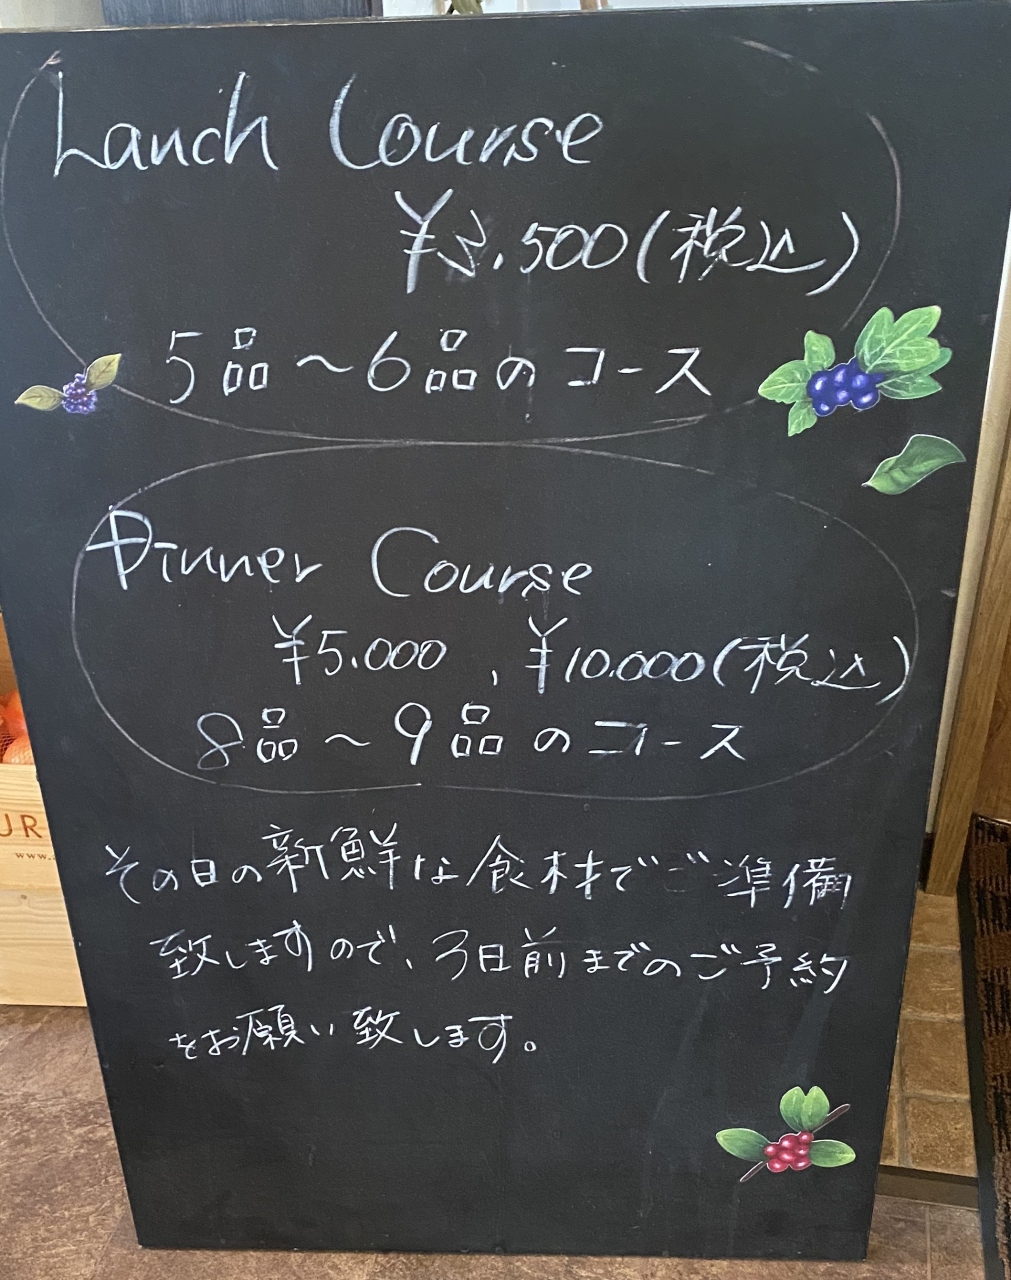 Lanch Course
¥3.500(税込)
5品〜6品のコース
Dinner Course
¥5.000、¥10.000(税込)
8品〜9品のコース
その日の新鮮な食材でご準備
致しますので、3日前までのご予約
をお願い致します。
UR
www.